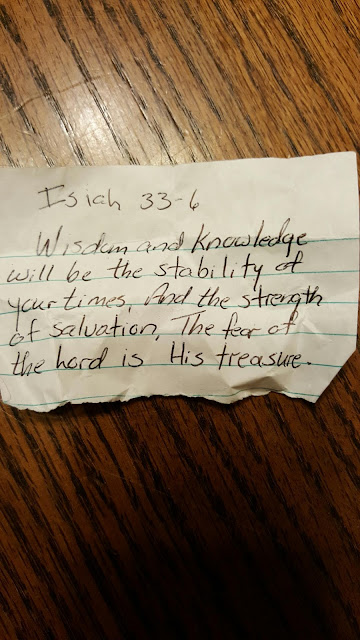 Isiah 33-6
Wisdom and Knowledge
will be the stability of
your times, And the strength
of salvation, The fear of
the Lord is His treasure.